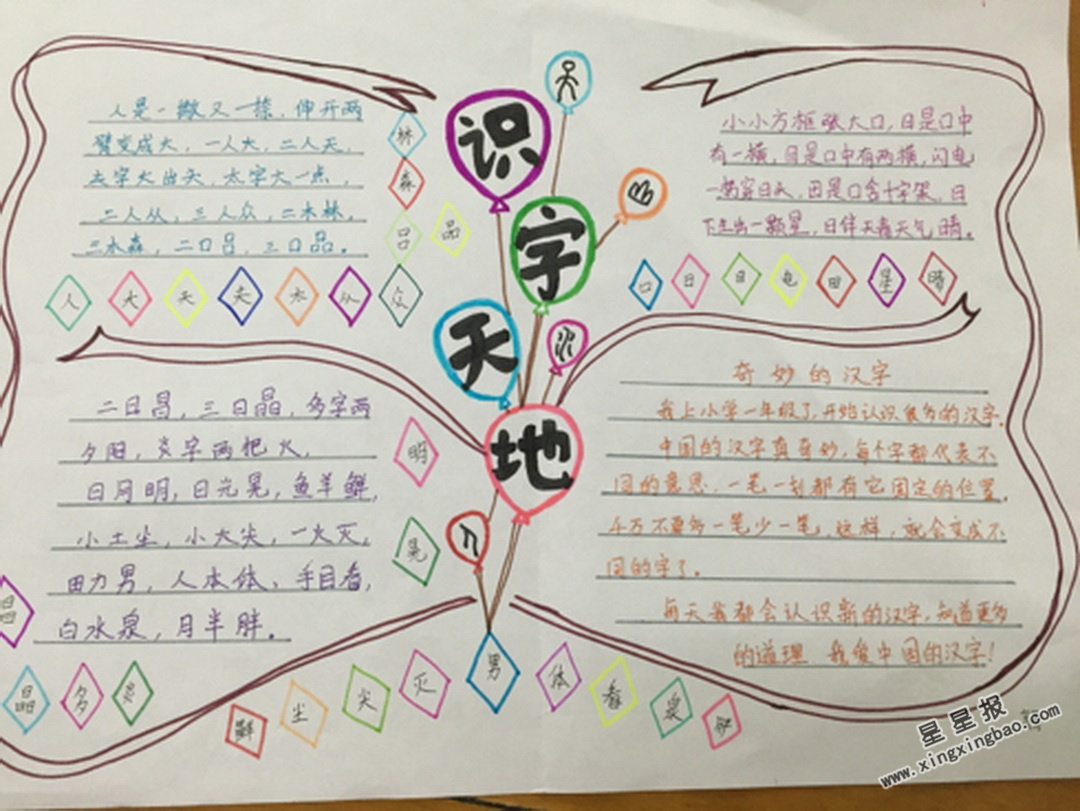 识
字
天
地
人是一撇又一捺，伸开两
臂变成大，一人大，二人天，
夫字天出头，太字大一点，
二人从，三人众，二木林，
三木森，二口吕，三口品。
林
森
吕
品
人
大
天
夫
太
从
众
小小方框张大口，日是口中
有一横，目是口中有两横，闪电
一穿日头，田是口含十字架，日
下生出一颗星，日伴天青天气晴。
口
日
目
电
田
星
晴
二日昌，三日晶，多字两
夕阳，炎字两把火，
日月明，日光晃，鱼羊鲜，
小土尘，小大尖，一火灭，
田力男，人本体，手目看，
白水泉，月半胖。
明
晃
昌
晶
多
炎
鲜
尘
尖
灭
男
体
看
泉
胖
奇妙的汉字
我上小学一年级了，开始认识很多的汉字。
中国的汉字真奇妙，每个字都代表不
同的意思，一笔一划都有它固定的位置。
千万不要多一笔少一笔，这样，就会变成不
同的字了。
每天我都会认识新的汉字，知道更多
的道理 我爱中国的汉字！
星星报
www.xingxingbao.com